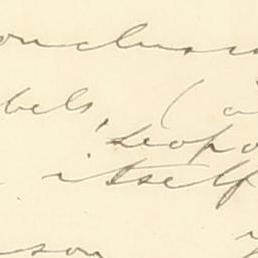 onclus
bels, (a
'Leopo
itself
son y